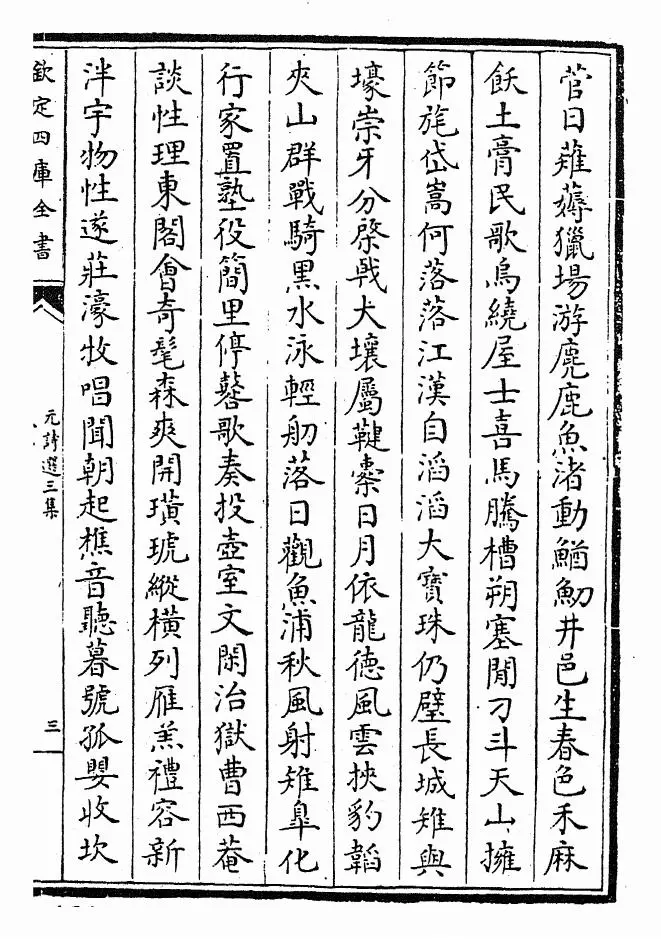 菅日薙薅獵場游麀鹿魚渚動鰌魛井邑生春色禾麻
飫土膏民歌烏繞屋士喜馬騰槽朔塞閒刁斗天山擁
節旄岱嵩何落落江漢自滔滔大寶珠仍璧長城雉與
壕崇牙分棨㦸犬壤屬鞬櫜日月依龍德風雲挾豹韜
夾山群戰騎黑水泳輕舠落日觀魚浦秋風射雉臯化
行家置塾役簡里停鼛歌奏投壺室文閑治獄曹西菴
談性理東閣會奇髦森爽開璜琥縱橫列雁羔禮容新
泮宇物性遂莊濠牧唱聞朝起樵音聽暮號孤嬰收坎
欽定四庫全書
元詩選三集
三